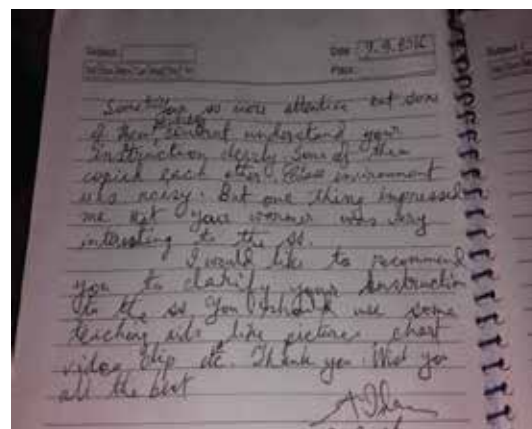 Subject :
Date : 9.9.2016
Place :
Some ss were attentive but some
of them could not understand your
Instruction clearly. Some of them
copied each other. Class environment
was noisy. But one thing impressed
me that your warmer was very
interesting to the ss.
I would like to recommend
you to clarify your Instruction
to the ss. You should use some
teaching aids like picture, chart
video clip etc. Thank you. Wish you
all the best